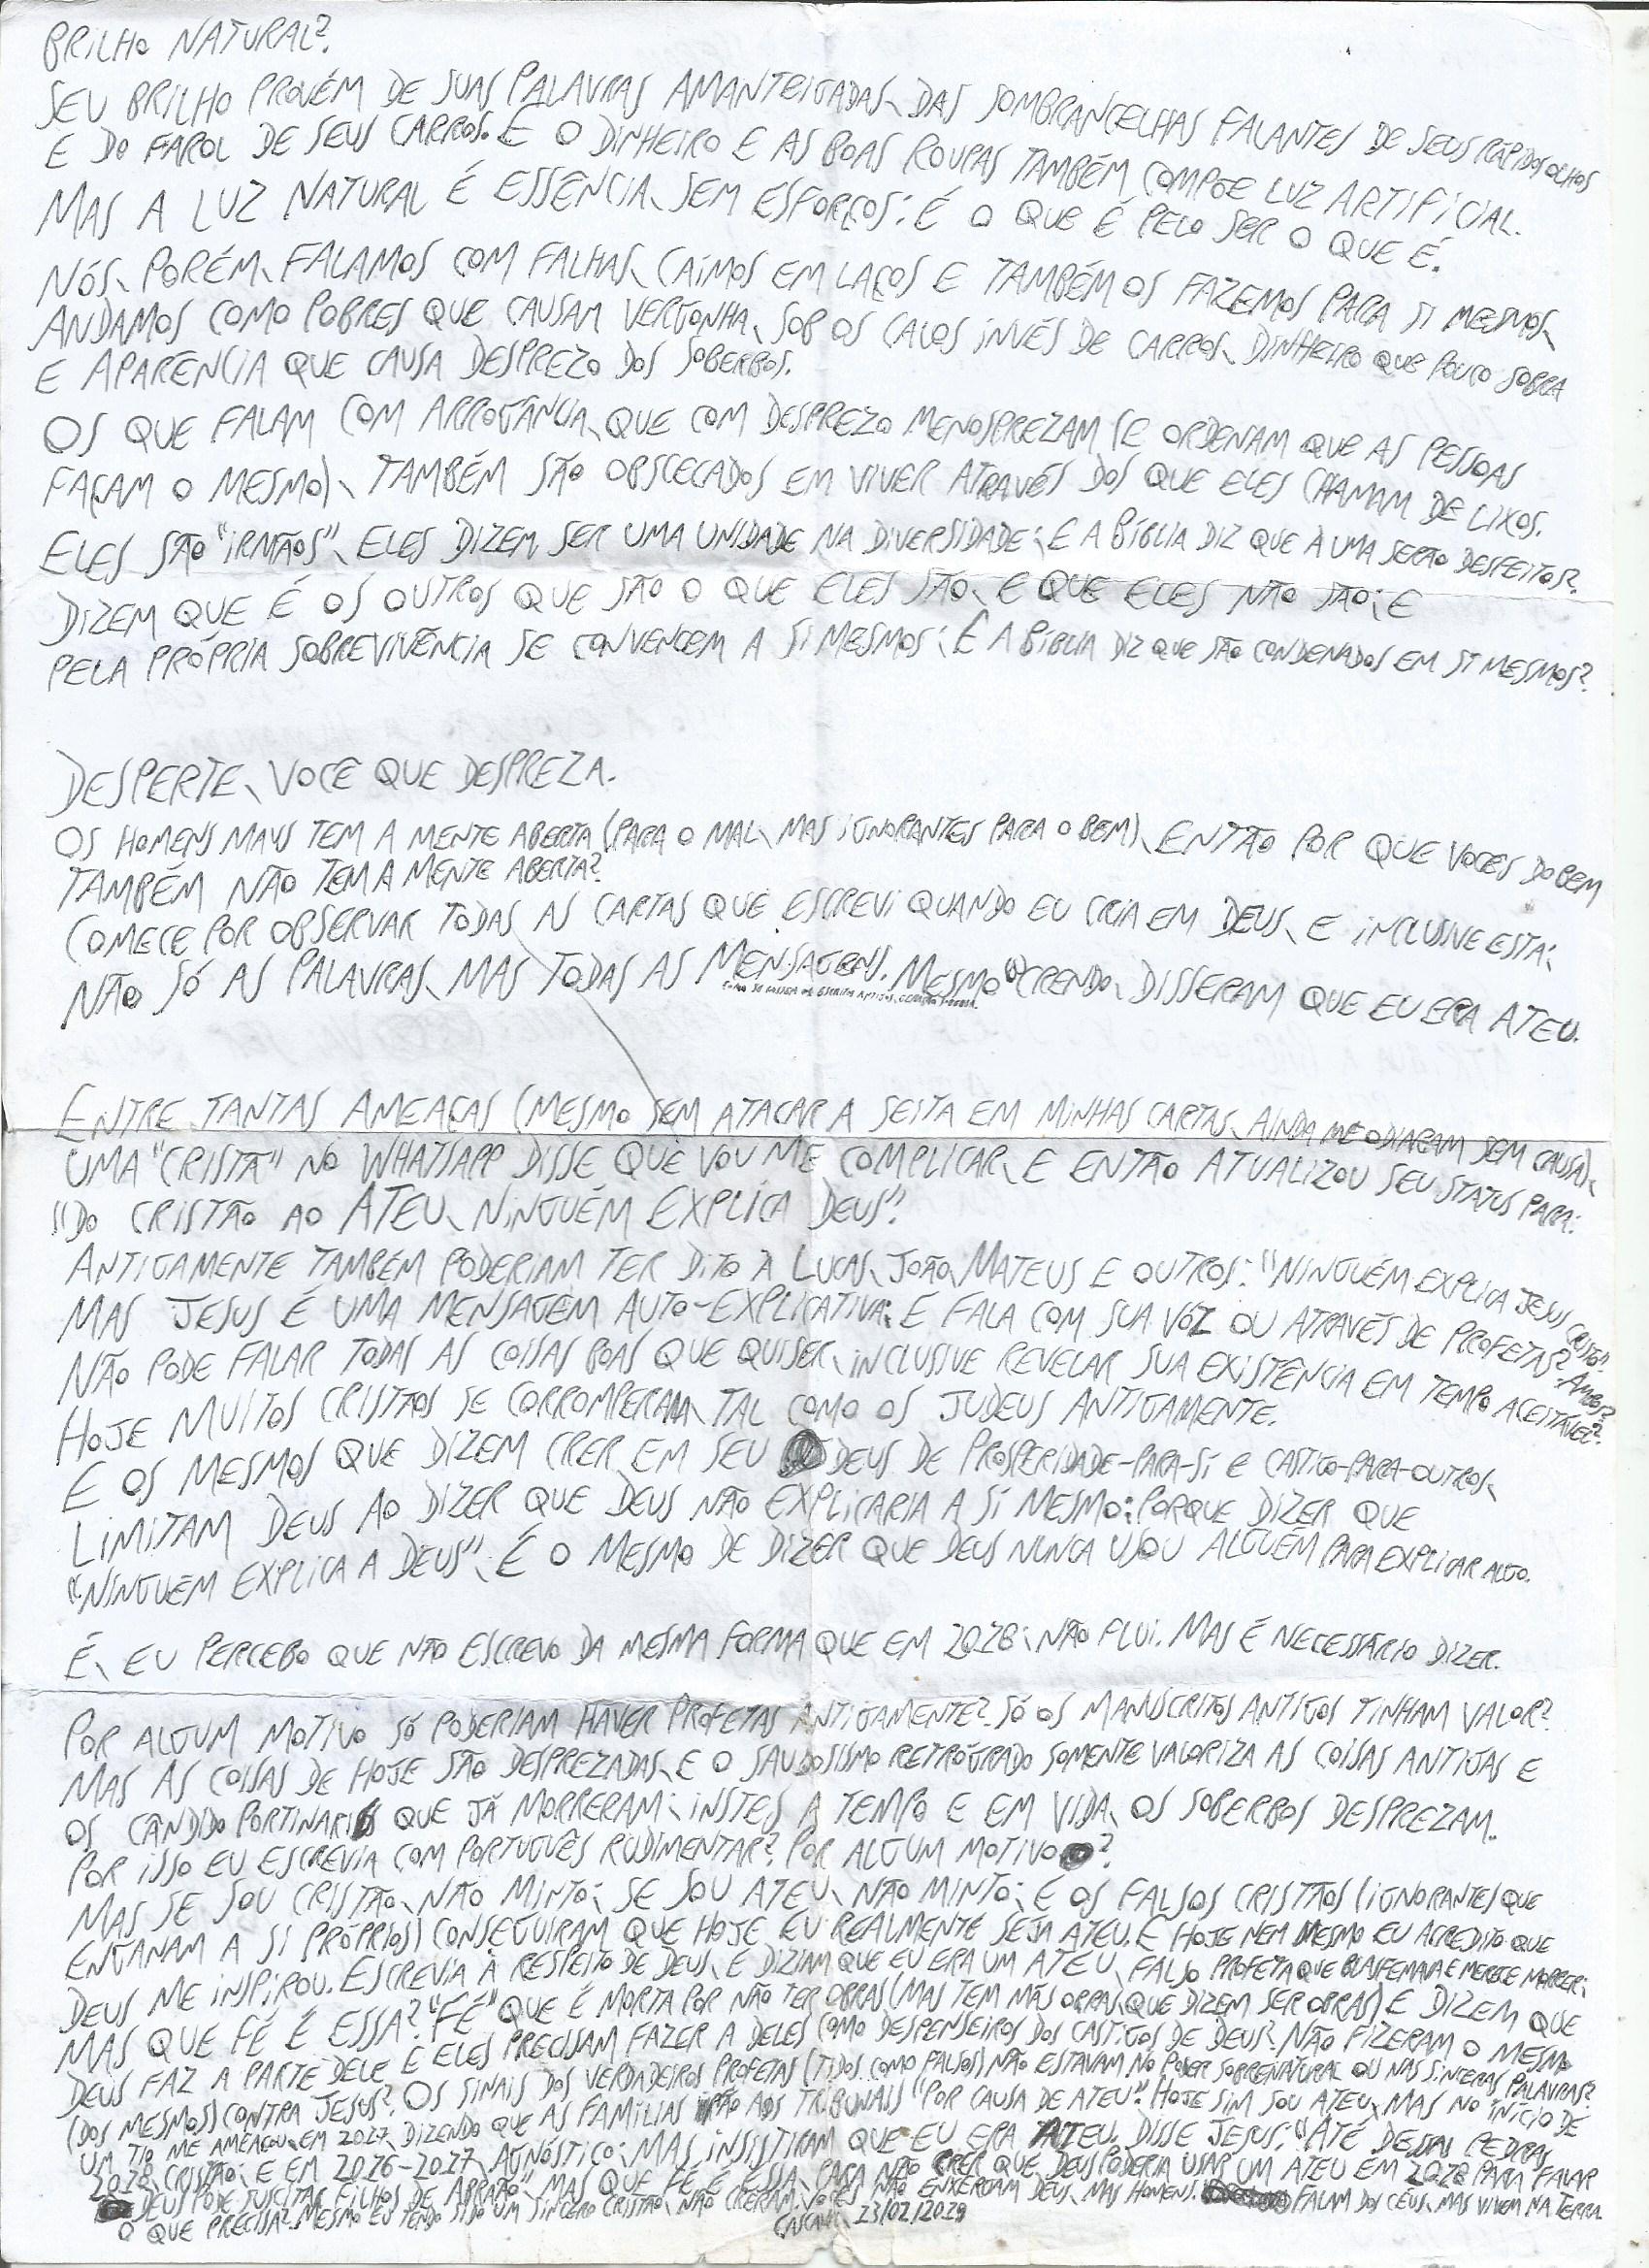 BRILHO NATURAL?.
SEU BRILHO PROVÉM DE SUAS PALAVRAS AMANTEIGADAS, DAS SOMBRANCELHAS FALANTES DE SEUS RÁPIDOS OLHOS
E DO FAROL DE SEUS CARROS. E O DINHEIRO E AS BOAS ROUPAS TAMBÉM COMPÕE LUZ ARTIFICIAL.
MAS A LUZ NATURAL É ESSÊNCIA, SEM ESFORÇOS: É O QUE É PELO SER O QUE É.
NÓS, PORÉM, FALAMOS COM FALHAS, CAÍMOS EM LAÇOS E TAMBÉM OS FAZEMOS PARA SI MESMOS,
ANDAMOS COMO POBRES QUE CAUSAM VERGONHA, SOB OS CALOS INVÉS DE CARROS, DINHEIRO QUE POUCO SOBRA
E APARÊNCIA QUE CAUSA DESPREZO DOS SOBERBOS.
OS QUE FALAM COM ARROGÂNCIA, QUE COM DESPREZO MENOSPREZAM (E ORDENAM QUE AS PESSOAS
FAÇAM O MESMO), TAMBÉM SÃO OBSCECADOS EM VIVER ATRAVÉS DOS QUE ELES CHAMAM DE LIXOS.
ELES SÃO "IRMÃOS", ELES DIZEM SER UMA UNIDADE NA DIVERSIDADE; E A BÍBLIA DIZ QUE À UMA SERÃO DESFEITOS?
DIZEM QUE É OS OUTROS QUE SÃO O QUE ELES SÃO, E QUE ELES NÃO SÃO; E
PELA PRÓPRIA SOBREVIVÊNCIA SE CONVENCEM A SI MESMOS; E A BÍBLIA DIZ QUE SÃO CONDENADOS EM SI MESMOS?
DESPERTE, VOCÊ QUE DESPREZA.
OS HOMENS MAUS TEM A MENTE ABERTA (PARA O MAL, MAS IGNORANTES PARA O BEM), ENTÃO POR QUE VOCES DO BEM
TAMBÉM NÃO TEM A MENTE ABERTA?
COMECE POR OBSERVAR TODAS AS CARTAS QUE ESCREVI QUANDO EU CRIA EM DEUS, E INCLUSIVE ESTA;
NÃO SÓ AS PALAVRAS, MAS TODAS AS MENSAGENS. MESMO CRENDO, DISSERAM QUE EU ERA ATEU.
ENTRE TANTAS AMEAÇAS (MESMO SEM ATACAR A SEITA EM MINHAS CARTAS, AINDA ME ODIARAM SEM CAUSA),
UMA "CRISTÃ" NO WHATSAPP DISSE QUE VOU ME COMPLICAR, E ENTÃO ATUALIZOU SEU STATUS PARA:
"DO CRISTÃO AO ATEU, NINGUÉM EXPLICA DEUS".
ANTIGAMENTE TAMBÉM PODERIAM TER DITO À LUCAS, JOÃO, MATEUS E OUTROS: "NINGUÉM EXPLICA JESUS CRISTO".
MAS JESUS É UMA MENSAGEM AUTO-EXPLICATIVA: E FALA COM SUA VÓZ OU ATRAVÉS DE PROFETAS? AMBOS?
NÃO PODE FALAR TODAS AS COISAS BOAS QUE QUISER, INCLUSIVE REVELAR SUA EXISTÊNCIA EM TEMPO ACEITÁVEL?.
HOJE MUITOS CRISTÃOS SE CORROMPERAM, TAL COMO OS JUDEUS ANTIGAMENTE.
E OS MESMOS QUE DIZEM CRER EM SEU DEUS DE PROSPERIDADE-PARA-SI E CASTIGO-PARA-OUTROS,
LIMITAM DEUS AO DIZER QUE DEUS NÃO EXPLICARIA A SI MESMO: PORQUE DIZER QUE
"NINGUÉM EXPLICA A DEUS", É O MESMO DE DIZER QUE DEUS NUNCA USOU ALGUÉM PARA EXPLICAR ALGO.
É, EU PERCEBO QUE NÃO ESCREVO DA MESMA FORMA QUE EM 2028; NÃO FLUI. MAS É NECESSÁRIO DIZER.
POR ALGUM MOTIVO SÓ PODERIAM HAVER PROFETAS ANTIGAMENTE?. SÓ OS MANUSCRITOS ANTIGOS TINHAM VALOR?
MAS AS COISAS DE HOJE SÃO DESPREZADAS, E O SAUDOSISMO RETRÓGRADO SOMENTE VALORIZA AS COISAS ANTIGAS E
OS CÂNDIDO PORTINARIS QUE JÁ MORRERAM; INSTES A TEMPO E EM VIDA, OS SOBERBOS DESPREZAM.
POR ISSO EU ESCREVIA COM PORTUGUÊS RUDIMENTAR? POR ALGUM MOTIVO?
MAS SE SOU CRISTÃO, NÃO MINTO; SE SOU ATEU, NÃO MINTO; E OS FALSOS CRISTÃOS (IGNORANTES QUE
ENGANAM A SI PRÓPRIOS) CONSEGUIRAM QUE HOJE EU REALMENTE SEJA ATEU. E HOJE NEM MESMO EU ACREDITO QUE
DEUS ME INSPIROU. ESCREVIA À RESPEITO DE DEUS, E DIZIAM QUE EU ERA UM ATEU, FALSO PROFETA QUE BLASFEMAVA E MERECE MORRER;
MAS QUE FÉ É ESSA? "FÉ" QUE É MORTA POR NÃO TER OBRAS (MAS TEM MÁS OBRAS, QUE DIZEM SER OBRAS) E DIZEM QUE
DEUS FAZ A PARTE DELE E ELES PRECISAM FAZER A DELES COMO DESPENSEIROS DOS CASTIGOS DE DEUS? NÃO FIZERAM O MESMO
(DOS MESMOS) CONTRA JESUS?. OS SINAIS DOS VERDADEIROS PROFETAS (TIDOS COMO FALSOS) NÃO ESTAVAM NO PODER SOBRENATURAL OU NAS SINCERAS PALAVRAS?
UM TIO ME AMEAÇOU, EM 2027, DIZENDO QUE AS FAMÍLIAS IRÃO AOS TRIBUNAIS "POR CAUSA DE ATEU". HOJE SIM SOU ATEU, MAS NO INÍCIO DE
2028, CRISTÃO; E EM 2026-2027, AGNÓSTICO; MAS INSISTIRAM QUE EU ERA ATEU. DISSE JESUS: "ATÉ DESTAS PEDRAS
DEUS PODE SUSCITAR FILHOS DE ABRAÃO", MAS QUE FÉ É ESSA, PARA NÃO CRER QUE DEUS PODERIA USAR UM ATEU EM 2028 PARA FALAR
O QUE PRECISA?. MESMO EU TENDO SIDO UM SINCERO CRISTÃO, NÃO CRERAM. VOCES NÃO ENXERGAM DEUS, MAS HOMENS. FALAM DOS CÉUS, MAS VIVEM NA TERRA.
23/02/2029